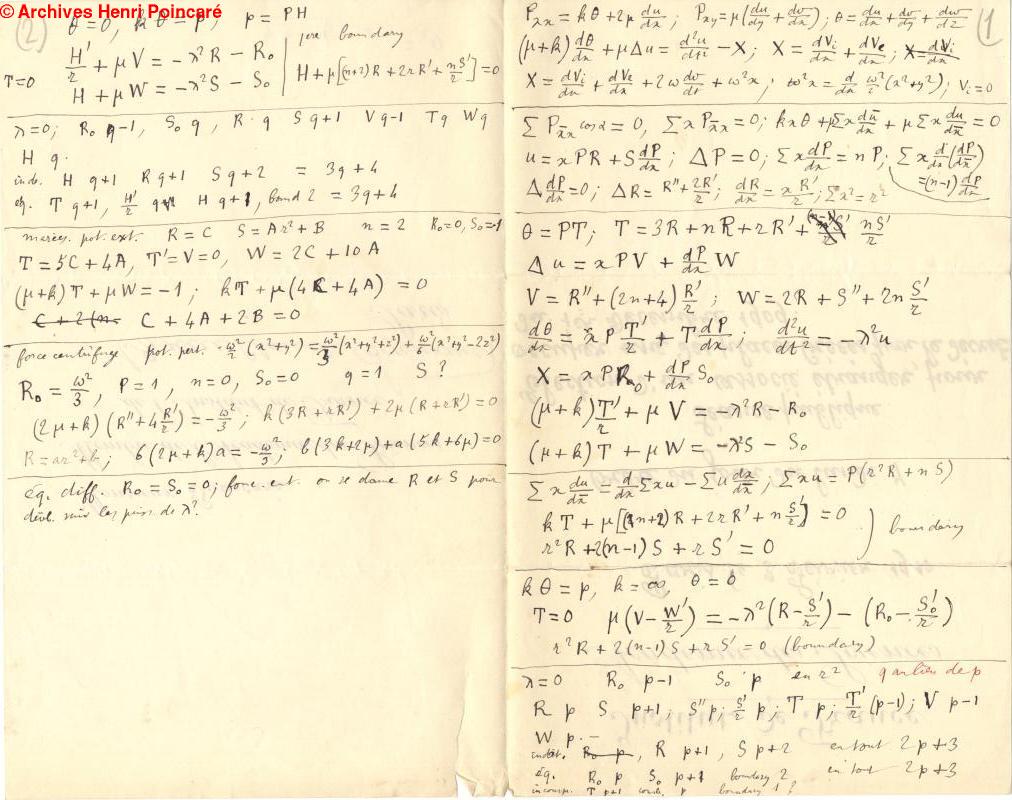 © Archives Henri Poincaré
(2)
θ=0, kθ=p, p = PH
H'/r + μV = -λ²R - R₀
T=0
H + μW = -λ²S - S₀
boundary
H+μ[(n+2)R+2rR'+nS'/r]=0
λ=0; R₀ q-1, S₀ q, R q S q+1 V q-1 T q W q
H q.
indét. H q+1 R q+1 S q+2 = 3q+4
éq. T q+1, H'/r q H q+1, bound 2 = 3q+4
marées. pot. ext. R = C S = Ar²+B n = 2 R₀=0, S₀=-1
T = 5C+4A, T'=V=0, W = 2C+10A
(μ+k)T+μW = -1; kT+μ(4C+4A) = 0
C+2(n- C+4A+2B = 0
force centrifuge pot. pert. ω²/2 (x²+y²) = ω²/3 (x²+y²+z²) + ω²/6 (x²+y²-2z²)
R₀ = ω²/3, P=1, n=0, S₀=0 q=1 S?
(2μ+k)(R''+4R'/r) = -ω²/3; k(3R+rR')+2μ(R+rR')=0
R=ar²+b; 6(2μ+k)a = -ω²/3; b(3k+2μ)+a(5k+6μ)=0
éq. diff. R₀=S₀=0; forc. ext. on se donne R et S pour
dével. suiv. les puiss de λ?
(1)
Pxx = kθ+2μ du/dx; Pxy = μ(du/dy+dv/dx); θ = du/dx+dv/dy+dw/dz
(μ+k) dθ/dx + μΔu = d²u/dt² - X; X = dVi/dx + dVe/dx; X = dVi
X = dVi/dx + dVe/dx + 2ω dv/dt + ω²x; ω²x = d/dx ω²/2 (x²+y²); Vi=0
Σ Pxx cosα = 0, Σ x Pxx = 0; kxθ+μΣx du/dx + μΣx du/dx = 0
u = xPR + S dP/dx; ΔP=0; Σx dP/dx = nP; Σx d/dx(dP/dx)
=(n-1) dP/dx
Δ dP/dx = 0; ΔR = R''+2R'/r; dR/dx = xR'/r; Σx²=r²
θ = PT; T = 3R+nR+rR'+ (n-1)S'/r nS'/r
Δu = xPV + dP/dx W
V = R''+(2n+4) R'/r; W = 2R+S''+2n S'/r
dθ/dx = xP T'/r + T dP/dx; d²u/dt² = -λ²u
X = xPR₀ + dP/dx S₀
(μ+k)T'/r + μV = -λ²R - R₀
(μ+k)T + μW = -λ²S - S₀
Σx du/dx = d/dx Σxu - Σu dx/dx; Σxu = P(r²R+nS)
kT+μ[(n+2)R+2rR'+nS'/r] = 0
r²R+2(n-1)S+rS' = 0
boundary
kθ=p, k=∞ θ=0
T=0 μ(V-W'/r) = -λ²(R-S'/r) - (R₀-S₀'/r)
r²R+2(n-1)S+rS' = 0 (boundary)
λ=0 R₀ p-1 S₀ p en r² q au lieu de p
R p S p+1; S'' p; S'/r p; T p; T'/r (p-1); V p-1
W p.
indét. R₀ p, R p+1, S p+2 en tout 2p+3
éq. R₀ p S₀ p+1 boundary 2 en tout 2p+3
incomp. T p+1 p boundary 1?